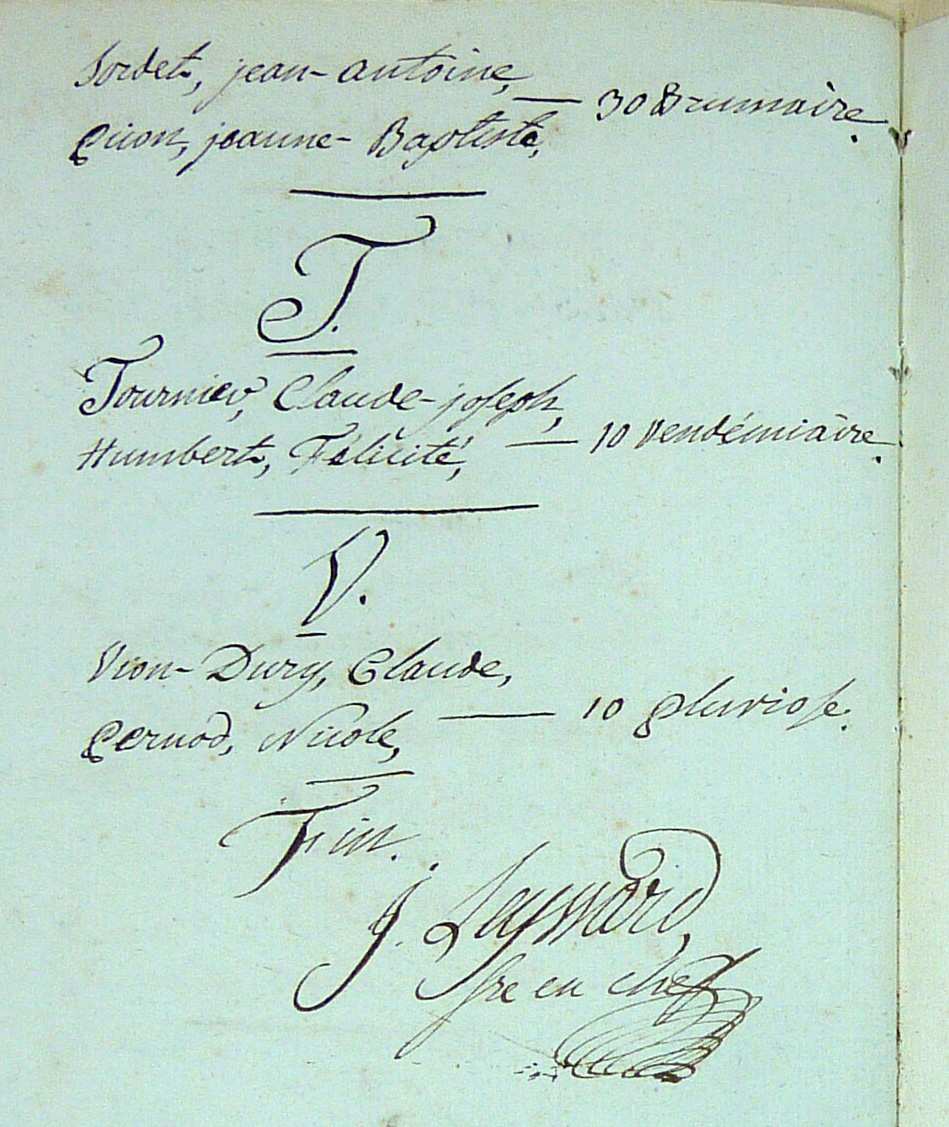 Sordet, jean-antoine,
Pion, jeanne-Baptiste, — 30 Brumaire.
T.
Tournier, Claude-joseph,
Humbert, Félicité, — 10 vendémiaire.
V.
Vion-Dury, Claude,
Pernod, Nicole, — 10 pluviose.
Fin.
J.
en chef